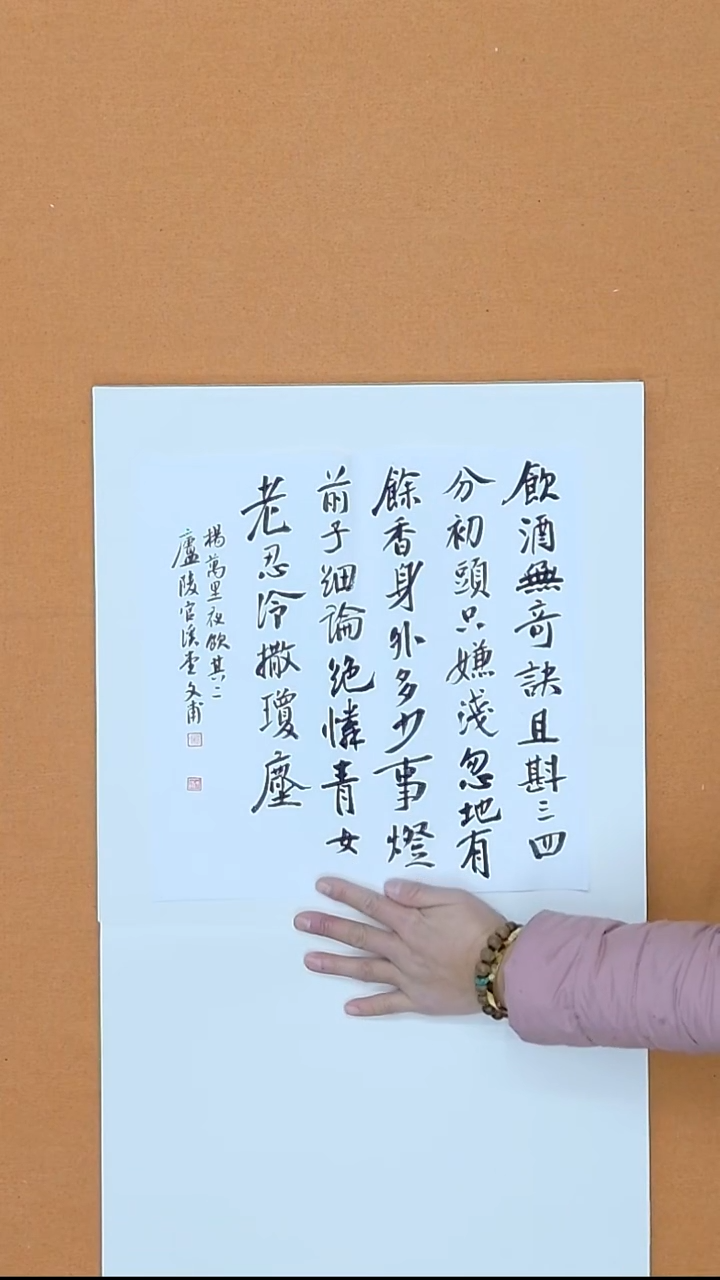 飲酒無奇訣且斟三四
分初頭只嫌淺忽地有
餘香身外多少事燈
前子細論絕憐青女
老忍冷撒瓊塵
楊萬里夜飲其二
廬陵官溪堂文甫